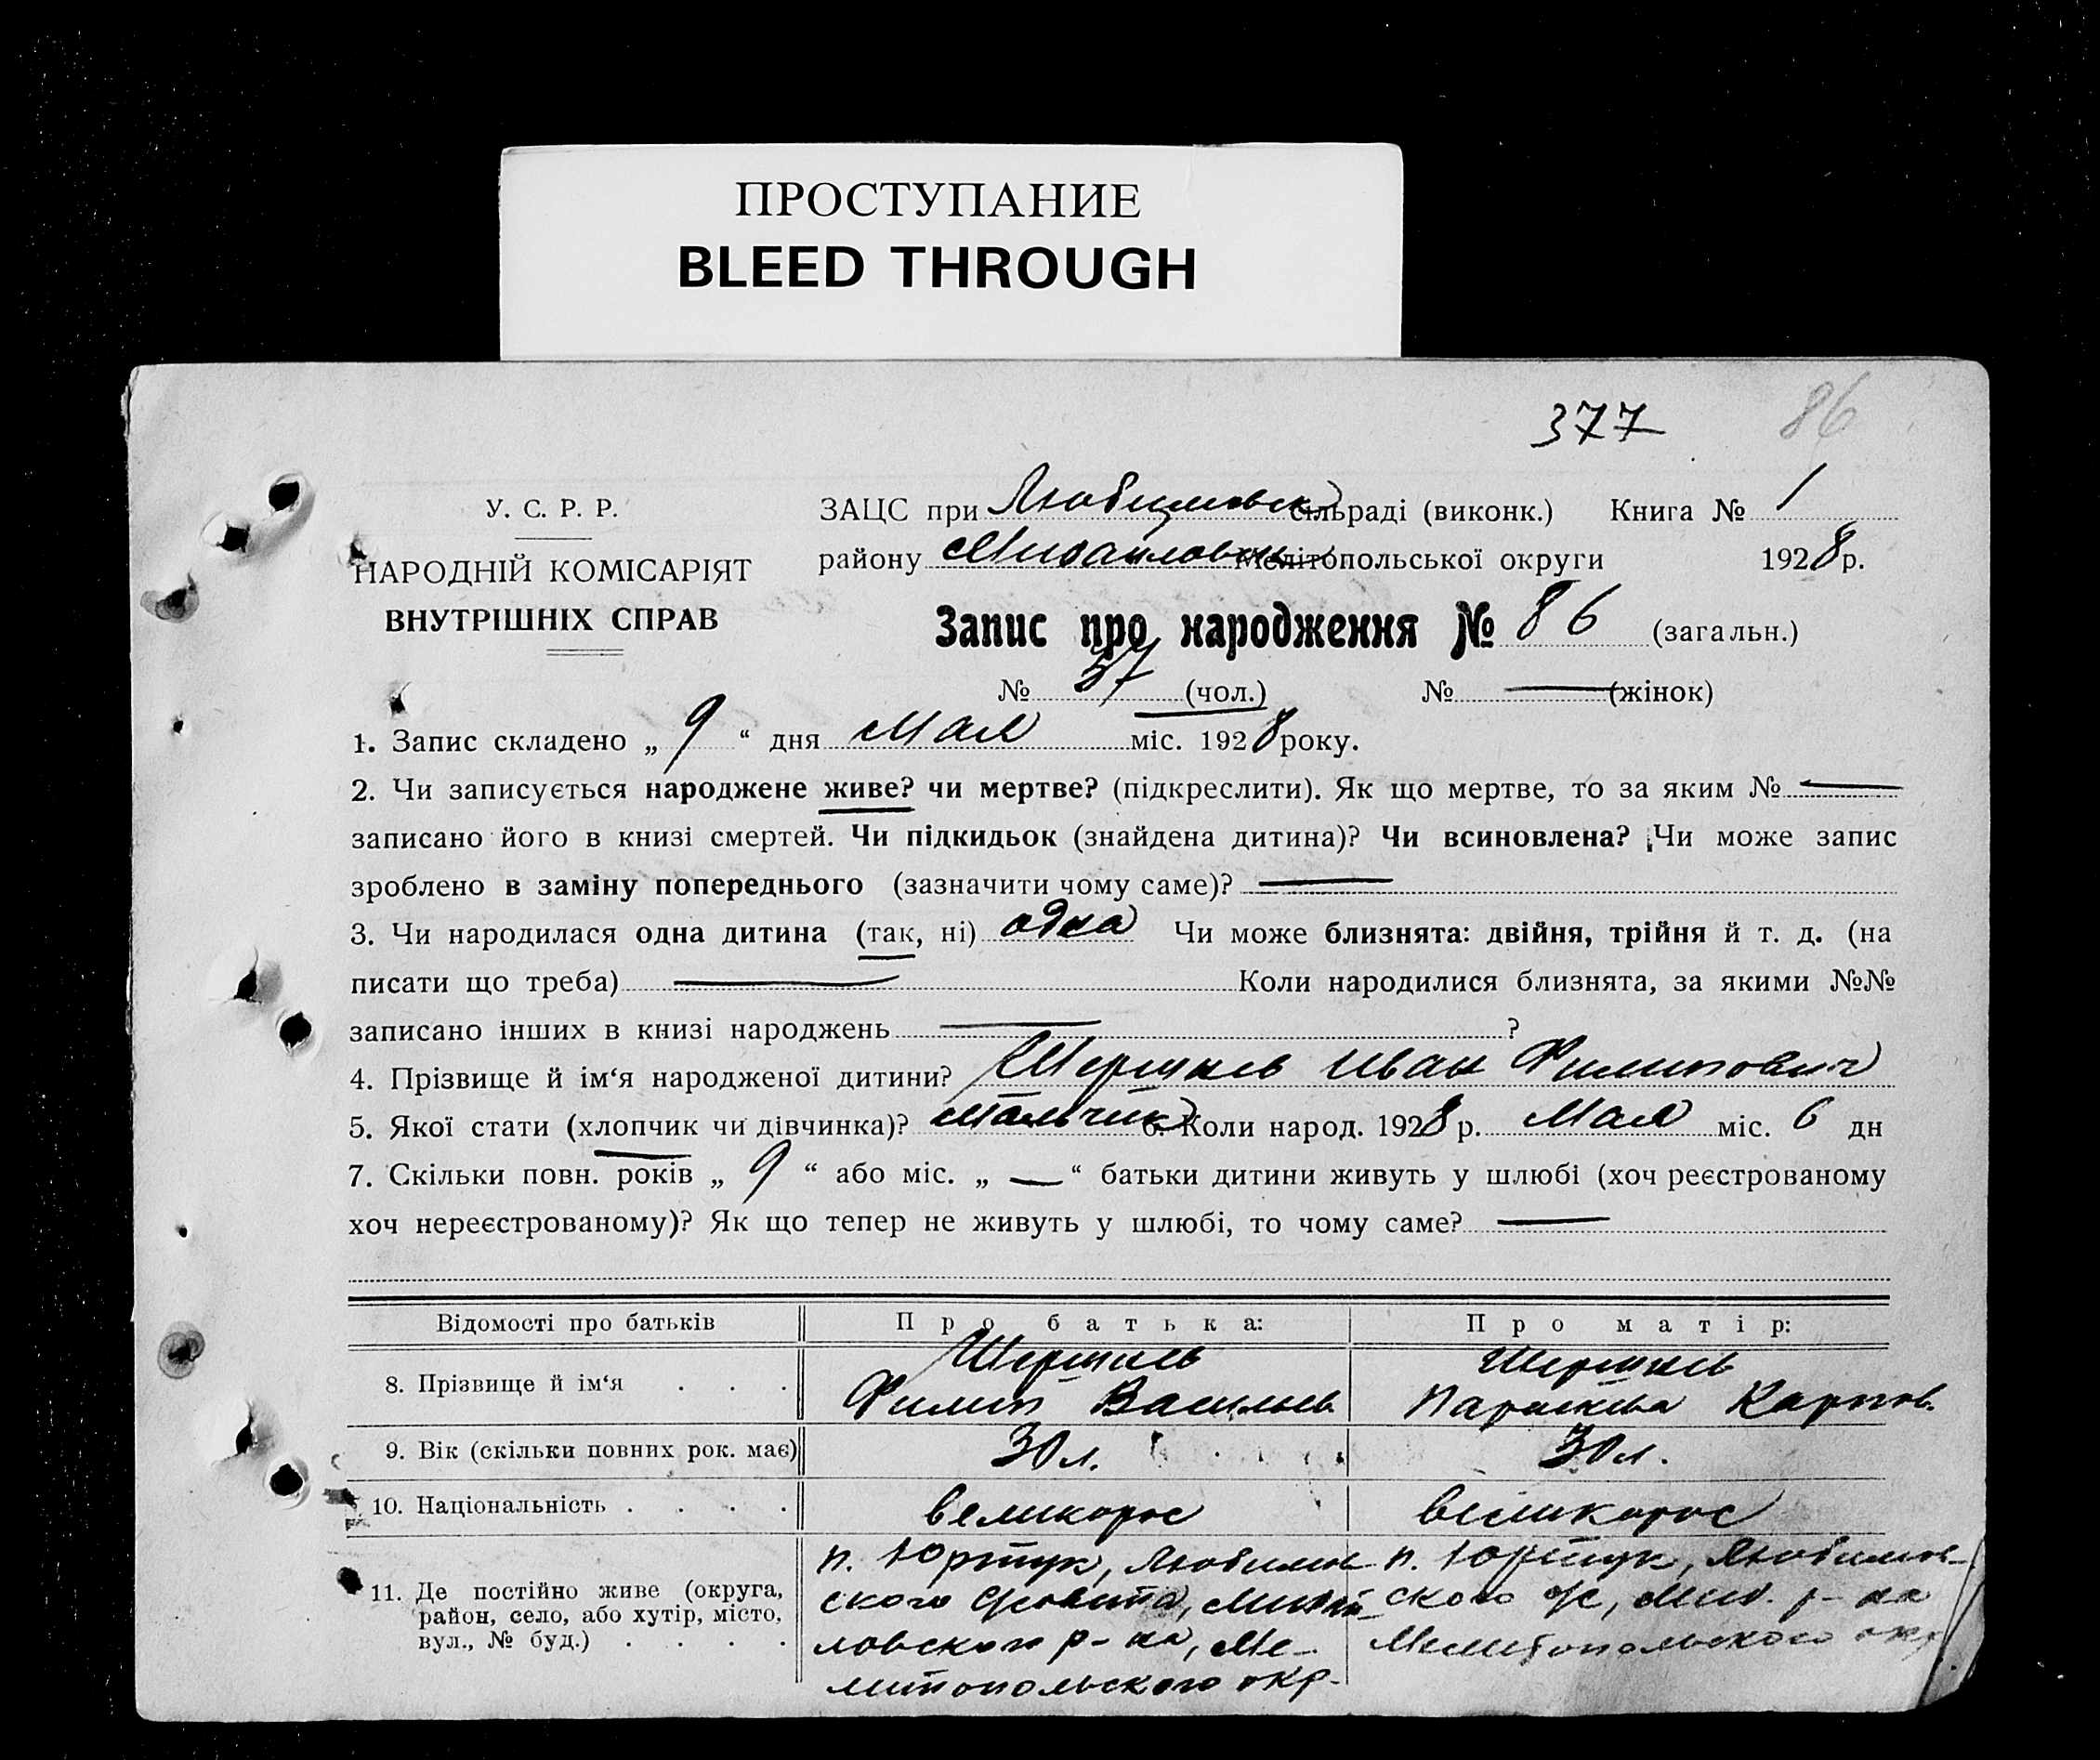 ПРОСТУПАНИЕ
BLEED THROUGH
377 86
У. С. Р. Р.
НАРОДНІЙ КОМІСАРІЯТ
ВНУТРІШНІХ СПРАВ
ЗАЦС при Любимовск сільраді (виконк.) Книга № 1
району Михайловск Мелітопольської округи 1928 р.
Запис про народження № 86 (загальн.)
№ 57 (чол.) № — (жінок)
1. Запис складено „ 9 “ дня Мая міс. 1928 року.
2. Чи записується народжене живе? чи мертве? (підкреслити). Як що мертве, то за яким № —
записано його в книзі смертей. Чи підкидьок (знайдена дитина)? Чи всиновлена? Чи може запис
зроблено в заміну попереднього (зазначити чому саме)? —
3. Чи народилася одна дитина (так, ні) одна Чи може близнята: двійня, трійня й т. д. (на
писати що треба) — Коли народилися близнята, за якими №№
записано інших в книзі народжень — ?
4. Прізвище й ім‘я народженої дитини? Иван Филипович
5. Якої стати (хлопчик чи дівчинка)? Мальчик 6. Коли народ. 1928 р. Мая міс. 6 дн
7. Скільки повн. років „ 9 “ або міс. „ — “ батьки дитини живуть у шлюбі (хоч реєстрованому
хоч нереєстрованому)? Як що тепер не живуть у шлюбі, то чому саме? —
Відомості про батьків Про батька: Про матір:
8. Прізвище й ім‘я . . .
Филип Васильев
Параскева Карпов.
9. Вік (скільки повних рок. має) 30 л. 30 л.
10. Національність . . . . великорос великорос
11. Де постійно живе (округа,
район, село, або хутір, місто,
вул., № буд.) . . . .
п. Юртук, Любимов
ского сельсовета, Михай-
ловского р-на, Ме-
литопольского окр.
п. Юртук, Любимов-
ского с/с, Мих. р-на
Мелитопольского окр